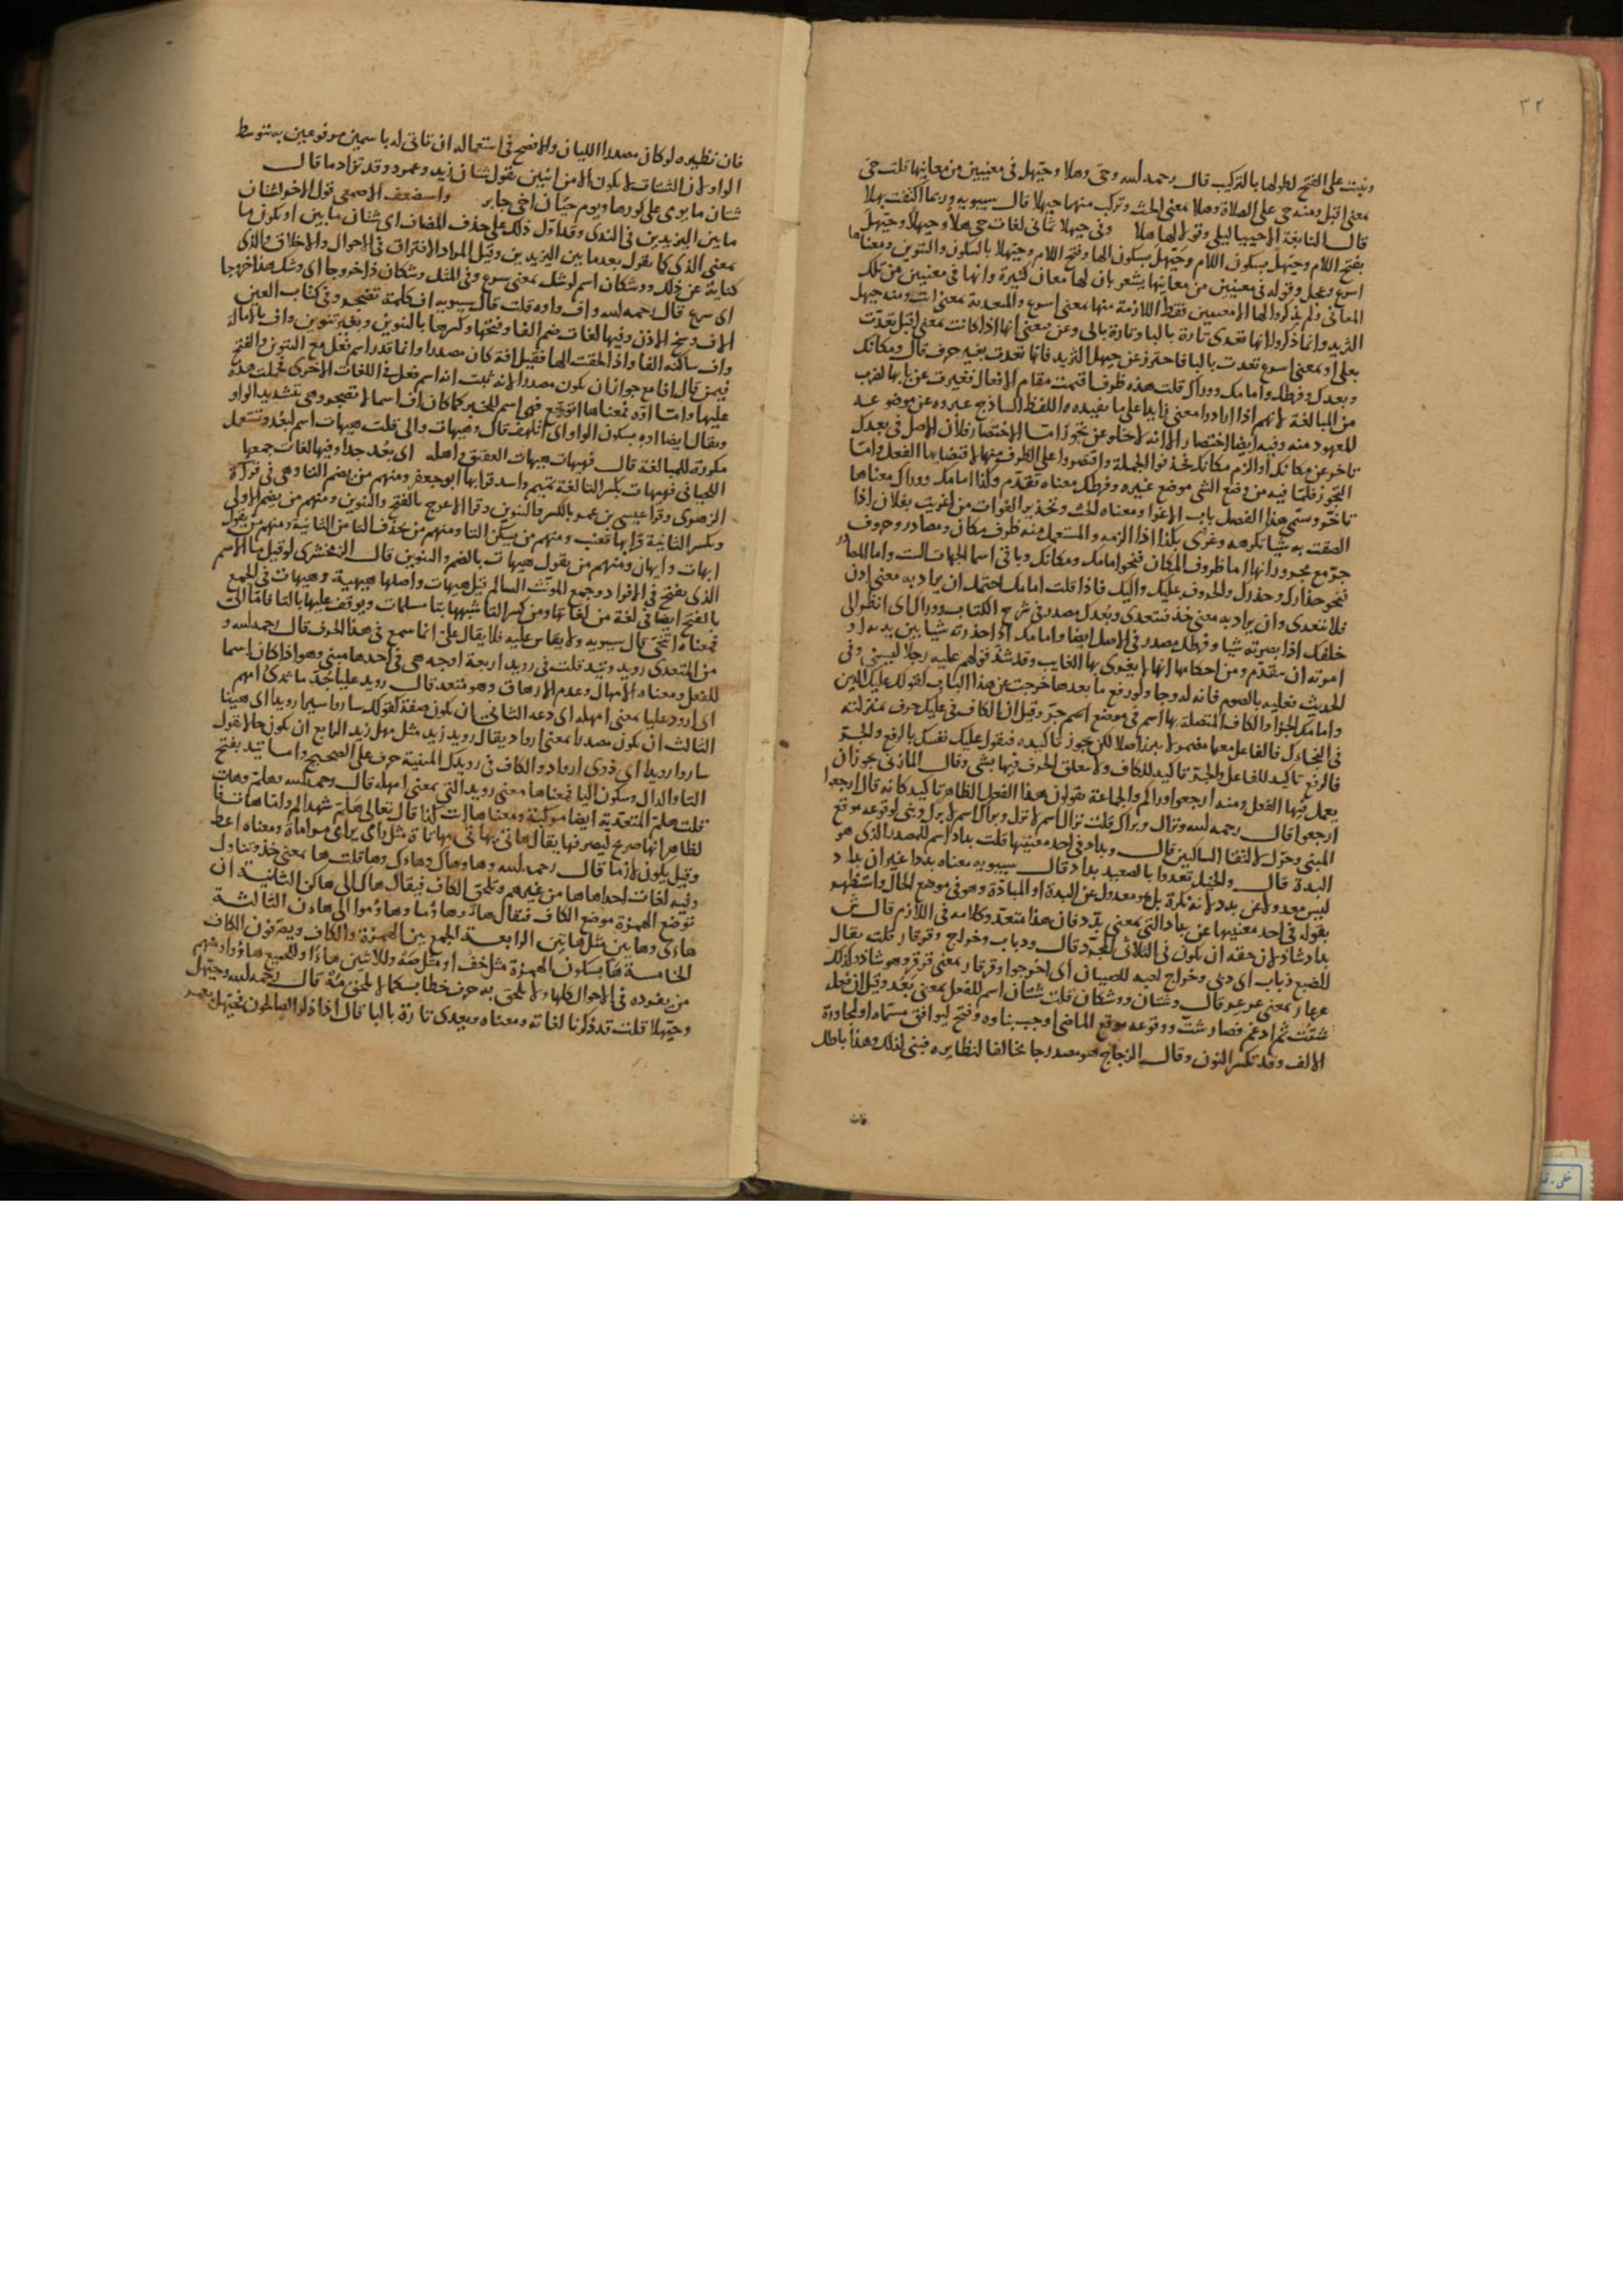 ٣٢
وبنيت على الفتح لطولها بالتركيب قال رحمه الله وحى وهلا وحيهل في معنيين من معانيها قلت حى
بمعنى اقبل ومنه حى على الصلاة وهلا بمعنى الحث وتركب منهما حيهلا قال سيبويه وربما اكتفت بهلا
قال النابغة الاحييا ليلى وقولا لها هلا وفى حيهلا ثمانى لغات حى هلا وحيهلا وحيهل
بفتح اللام وحيهل بسكون اللام وحيهل بسكون الها وفتح اللام وحيهلا بالسكون والتنوين ومعناها
اسرع وعجل وقوله فى معنيين من معانيها يشعر بان لها معان كثيرة وانها فى معنيين من تلك
المعانى ولم يذكروا لها الا معنيين فقط اللازمة منها بمعنى اسرع والمتعدية بمعنى ائت ومنه حيهل
الثريد وانما ذكروا انها تعدى تارة بالبا وتارة بالى وعن بمعنى انها اذا كانت بمعنى اقبل تعدت
بعلى او بمعنى اسرع تعدت بالبا فاحترز عن حيهل الثريد فانها تعدت بغير حرف قال ومكانك
وبعدك وفرطك وامامك ووراك قلت هذه ظروف اقيمت مقام الافعال فغيرت عن بابها لضرب
من المبالغة لانهم اذا ارادوا معنى زايدا على ما يفيده اللفظ الساذج غيروه عن موضوعه
المعهود منه وفيه ايضا اختصار الا انه لاخلو عن تجوز اما الاختصار فلان الاصل فى بعدك
تاخر عن مكانك او الزم مكانك فحذفوا الجملة واقتصروا على الظرف منها لاقتضابها الفعل واما
التجوز فلما فيه من وضع الشى موضع غيره وفرطك معناه تقدم وكذا امامك ووراك معناها
تاخر وسمى هذا الفصل باب الاغرا ومعناه الحث وتحذير الفوات من اغريت بفلان اذا
الصقت به شيا تكرهه وغرى بكذا اذا الزمه والمستعمل منه ظرف مكان ومصادر وحروف
جر مع مجرورانها اما ظروف المكان فنحو امامك ومكانك وباقى اسما الجهات الست واما المصادر
فنحو حذارك وحذرك والحروف عليك واليك فاذا قلت امامك احتمل ان يراد به معنى ادن
فلا تتعدى وان يراد به معنى خذ فتتعدى وبعدك مصدر فى شرح الكتاب ووراك اى انظر الى
خلفك اذا بصرته شيا وفرطك مصدر فى الاصل ايضا وامامك اذا حذرته شيا بين يديه او
امرته ان يتقدم ومن احكامها انها لا يغرى بها الغايب وقد شذ قولهم عليه رجلا ليسنى وفى
الحديث فعليه بالصوم فانه له وجا ولو رفع ما بعدها خرجت عن هذا الباب كقولك عليك الدين
وامامك الجزا والكاف المتصلة بها اسم فى موضع اسم جر وقيل ان الكاف فى عليك حرف بمنزلته
فى النجاءك فالفاعل معها مضمر لا يبرز اصلا لكن يجوز تاكيده فتقول عليك نفسك بالرفع والجر
فالرفع تاكيد للفاعل والجر تاكيد للكاف ولا يعلق الحرف فيها بشى وقال المازنى يجوز ان
يعمل فيها الفعل ومنه ارجعوا وراكم والجماعة يقولون هذا الفعل الظاهر تاكيد كانه قال ارجعوا
ارجعوا قال رحمه الله ونزال وبراك قلت نزال اسم لانزل وبراك اسم لابرك وبنى لوقوعه موقع
المبنى وحرك لالتقا الساكنين قال وبداد فى احد معنييها قلت بداد اسم للمصدر الذى هو
البدة قال والخيل تعدوا بالصعيد بداد قال سيبويه معناه بددا غير ان بداد
ليس معدولا عن بدد لانه نكرة بل هو معدول عن البدة او المبادة وهو فى موضع الحال واستظهر
بقوله فى احد معنييها عن بداد التى بمعنى بدد فان هذا متعد وكلامه فى اللازم قال
بداد شاذ لان حقه ان يكون فى الثلاثى المجرد قال ودباب وخراج وقرقار قلت يقال
للضبع دباب اى دبى وخراج لعبة للصبيان اى اخرجوا وقرقار بمعنى قرقر وهو شاذ وكذلك
عرعار بمعنى عرعر قال وشتان ووشكان قلت شتان اسم للفعل بمعنى بعد وقيل ان فعله
شتت ثم ادغم فصار شت ووقوعه موقع الماضى اوجب بناوه وفتح ليوافق مسماه او لمجاورة
الالف وقد تكسر النون وقال الزجاج هو مصدر جا مخالفا لنظايره فبنى لذلك وهذا باطل
فان
فان نظيره لو كان مصدرا الليان والافصح فى استعماله ان تاتى له باسمين مرفوعين به بتوسط
الواو لان الشتات لا يكون الا من اثنين تقول شتان زيد وعمرو وقد تزاد ما قال
شتان ما يومى على كورها ويوم حيان اخى جابر واستضعف الاصمعى قول الاخر لشتان
ما بين اليزيدين فى الندى وقد اول ذلك على حذف المضاف اى شتان ما بين او يكون ما
بمعنى الذى كما تقول بعد ما بين اليزيدين وقيل المراد الافتراق فى الاحوال والاخلاق والذى
كناية عن ذلك ووشكان اسم لوشك بمعنى سرع وفى المثل وشكان ذا خروجا اى وشك هذا خروجا
اى سرع قال رحمه الله واف واوه قلت قال سيبويه اف كلمة تضجر وفى كتاب العين
الاف وسخ الاذن وفيها لغات ضم الفا وفتحها وكسرها بالتنوين وبغير تنوين واف بالامالة
واف ساكنه الفا واذا الحقت الها فقيل افة كان مصدرا وانما قدر اسم فعل مع التنوين والفتح
فيمن قال افا مع جوازان يكون مصدرا لانه ثبت انه اسم فعل فى اللغات الاخرى فحملت هذه
عليها واما اوه فمعناها اتوجع فهى اسم للخبر كما كان اف اسما لاتضجر وهى بتشديد الواو
ويقال ايضا اوه بسكون الواو اى اتلهف قال وهيهات والى قلت هيهات اسم لبعد وتستعمل
مكررة للمبالغة قال فهيهات هيهات العقيق واهله اى بعد جدا وفيها لغات جمعها
اللحيانى فهيهات بكسر التا لغة تميم واسد قرا بها ابو جعفر ومنهم من يضم التا وهى فى قراة
الزهرى وقرا عيسى بن عمر بالكسر والتنوين وقرا الاعرج بالفتح والتنوين ومنهم من يضم الاولى
ويكسر الثانية قرا بها قعنب ومنهم من يسكن التا ومنهم من يحذف التا من الثانية ومنهم من يقول
ايهات وايهان ومنهم من يقول هيهات بالضم والتنوين قال الزمخشرى لو قيل ما الاسم
الذى يفتح فى الافراد وجمع المونث السالم قيل هيهات واصلها هيهية وهيهات فى الجمع
بالفتح ايضا فى لغة من لغاتها ومن كسر التا شبهها بتا مسلمات ويوقف عليها بالتا فاما الى
فمعناه اتنحى قال سيبويه ولا يقاس عليه فلا يقال على انما سمع فى هذا الحرف قال رحمه الله و
من المتعدى رويد وتيد قلت فى رويد اربعة اوجه هى فى احدها مبنى وهو اذا كان اسما
للفعل ومعناه الامهال وعدم الارهاق وهو متعد قال رويد عليا جد ما ثدى امهم
اى ارود عليا بمعنى امهله اى دعه الثانى ان يكون صفة كقولك ساروا سيرا رويدا اى هينا
الثالث ان يكون مصدرا بمعنى ارواد يقال رويد زيد مثل مهل زيد الرابع ان يكون حالا تقول
ساروا رويدا اى ذوى ارواد والكاف فى رويدك المبنية حرف على الصحيح واما تيد بفتح
التا والدال وسكون اليا فمعناها معنى رويد التى بمعنى امهله قال رحمه الله وهلم وهات
قلت هلم المتعدية ايضا مركبة ومعناها ات كذا قال تعالى هلم شهداكم واما هات
لظاهر انها صريح لتصرفها يقال هاتى يهاتى مهاتاة مثل رامى يرامى مراماة ومعناه اعط
وقيل يكون لازما قال رحمه الله وها وهاك وهاوك وها قلت ها بمعنى خذ وتناول
وفيه لغات احداها ها من غير همز وتلحق الكاف فيقال هاك الى هاكن الثانية ان
توضع الهمزة موضع الكاف فيقال هاء وهاؤما وهاؤموا الى هاءن الثالثة
هاءى وهابين مثل هاتين الرابعة الجمع بين الهمزة والكاف ويصرفون الكاف
الخامسة هأ بسكون الهمزة مثل خف او مثل صه وللاثنين هاءا وللجميع هاؤوا ومنهم
من يفرده فى الاحوال كلها ولا يلحق به حرف خطاب كما لا يلحق مه قال رحمه الله وحيهل
وحيهلا قلت قد ذكرنا لغاته ومعناه ويعدى تارة بالبا قال اذا ذكر الصالحون فحيهل بعمر